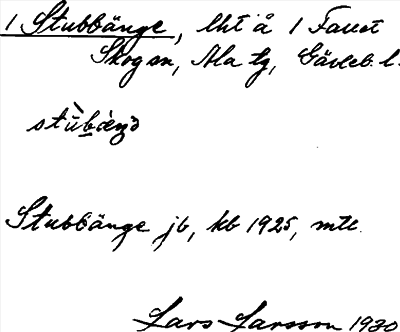 1 Stubbänge, lht å 1 Faust
Skog sn, Ala tg, Gävleb. l.
stùbæŋə
Stubbänge jb, kb 1925, mtl.
Lars Larsson 1930